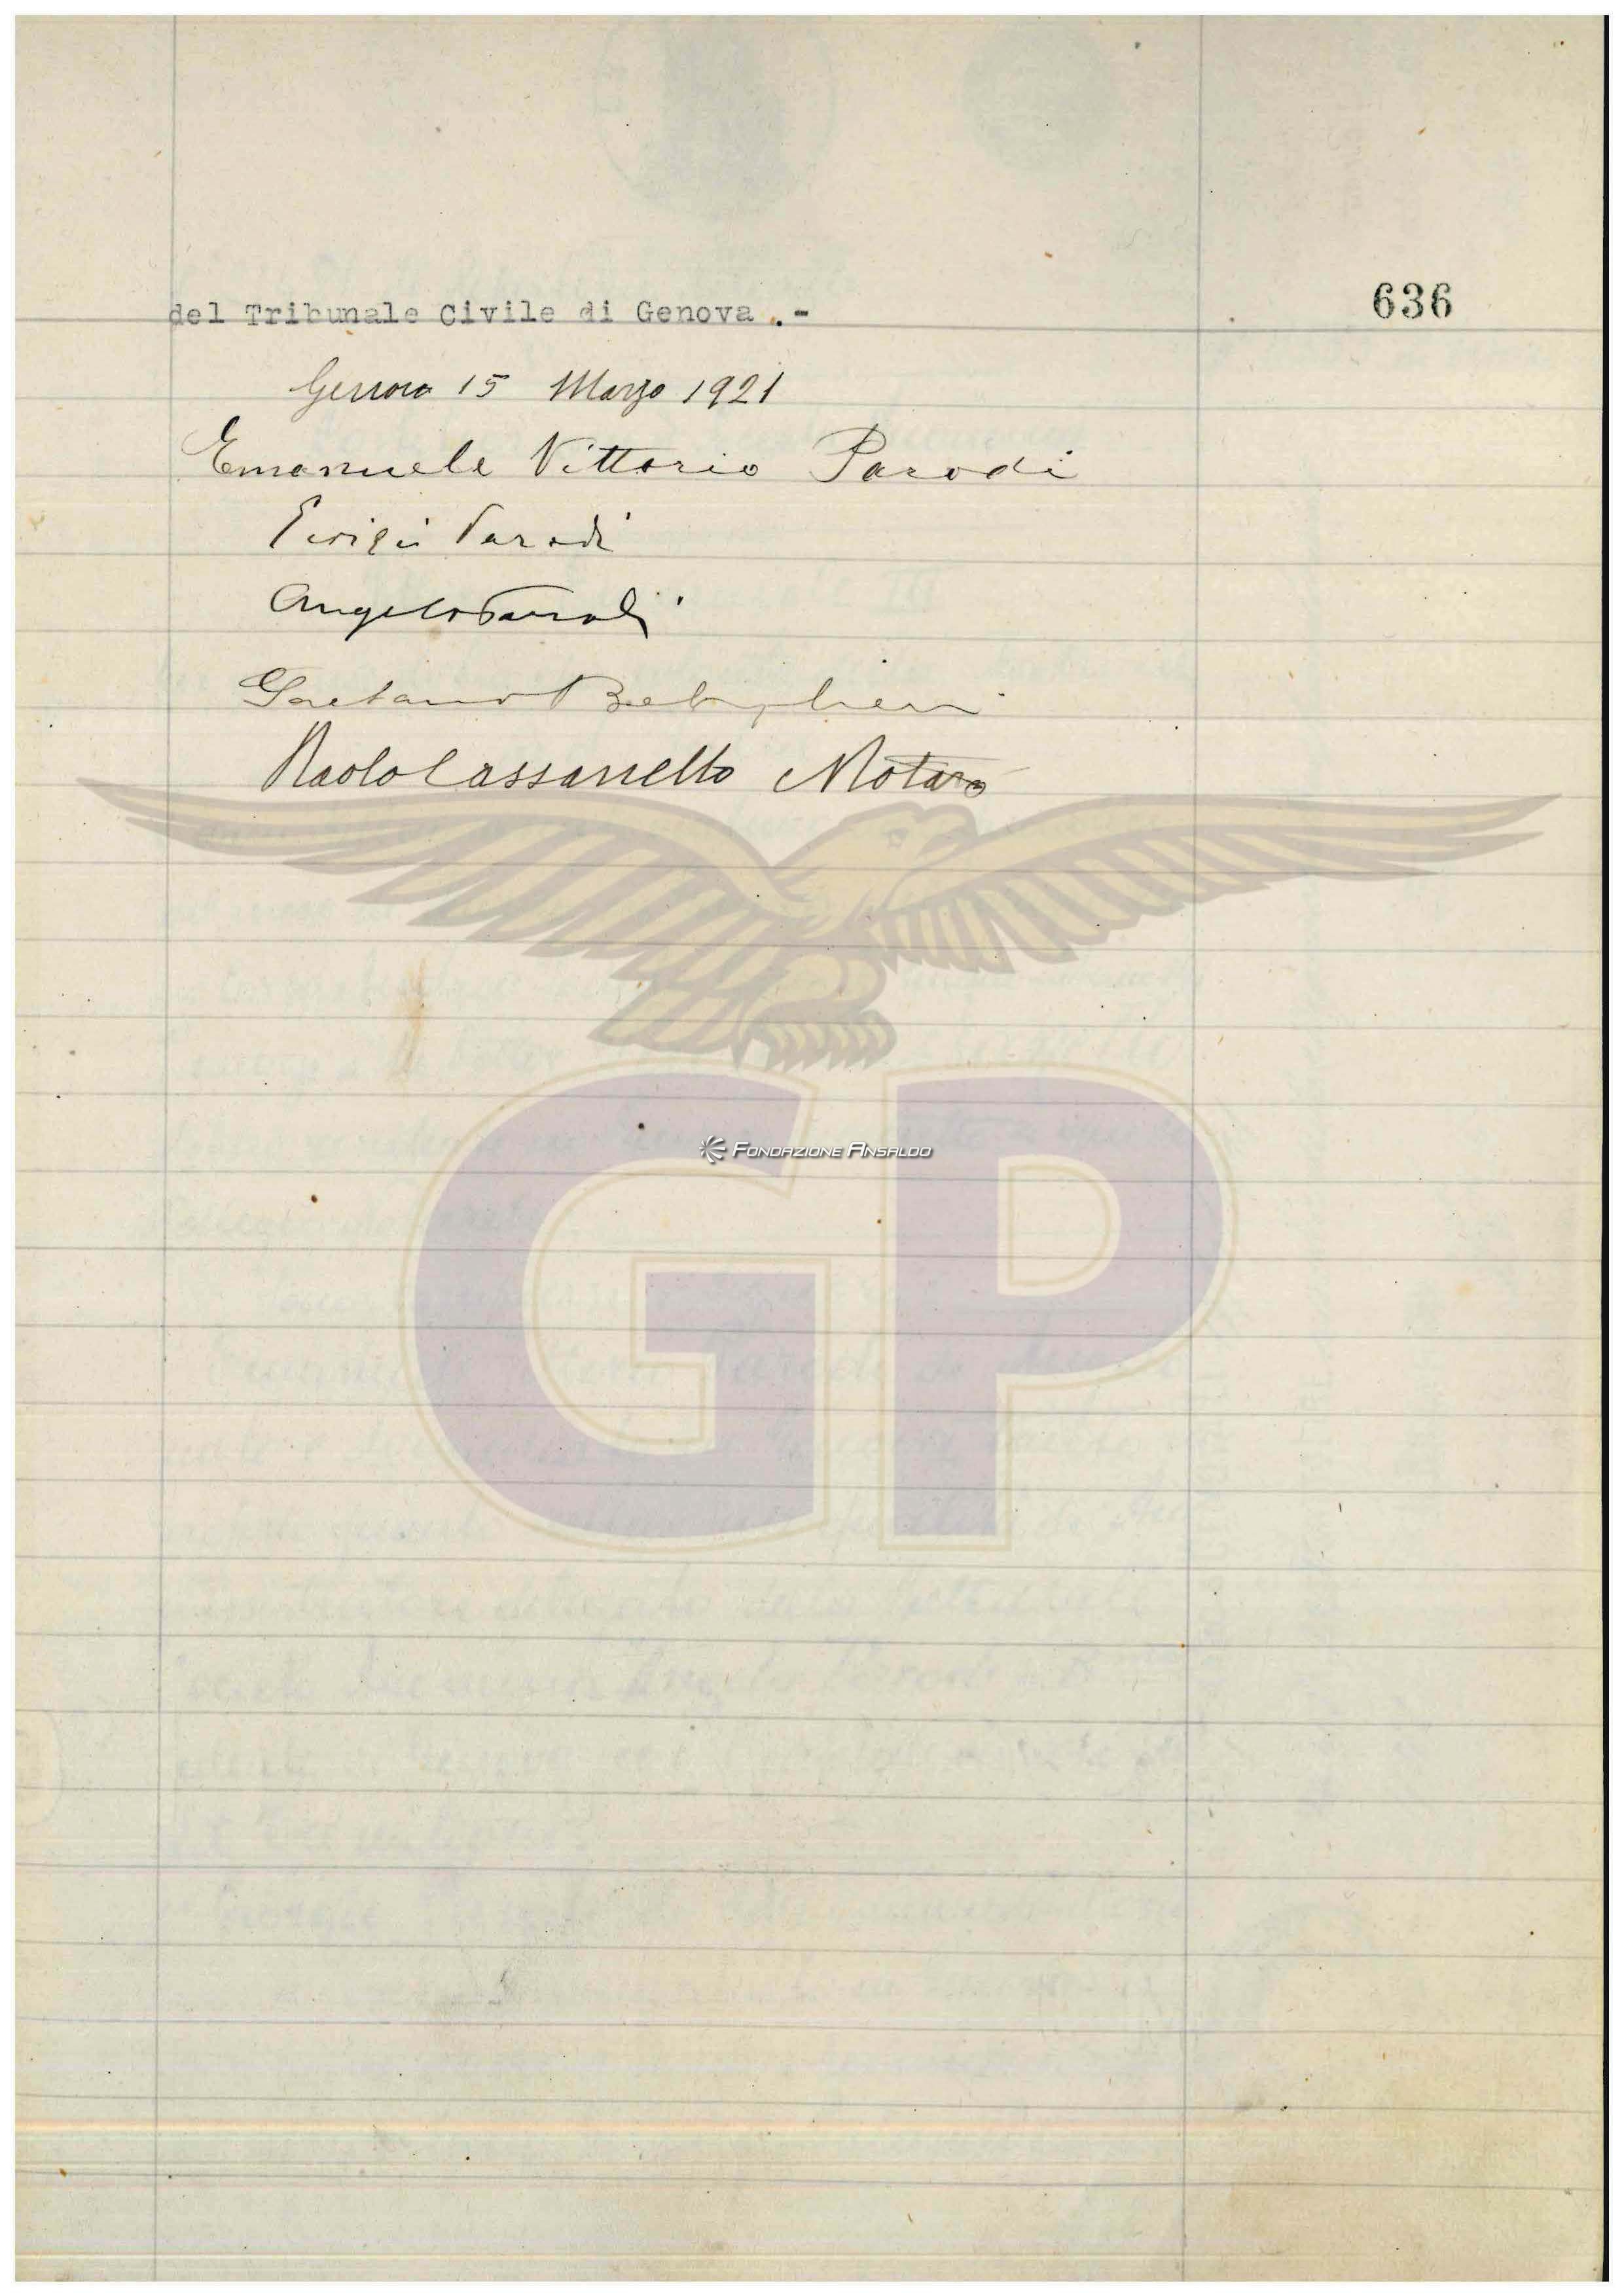 636
del Tribunale Civile di Genova .-
Genova 15 Marzo 1921
Emanuele Vittorio Parodi
Luigi Parodi
Angelo Parodi
Gaetano
Paolo Cassanello Notaro
FONDAZIONE ANSALDO
GP